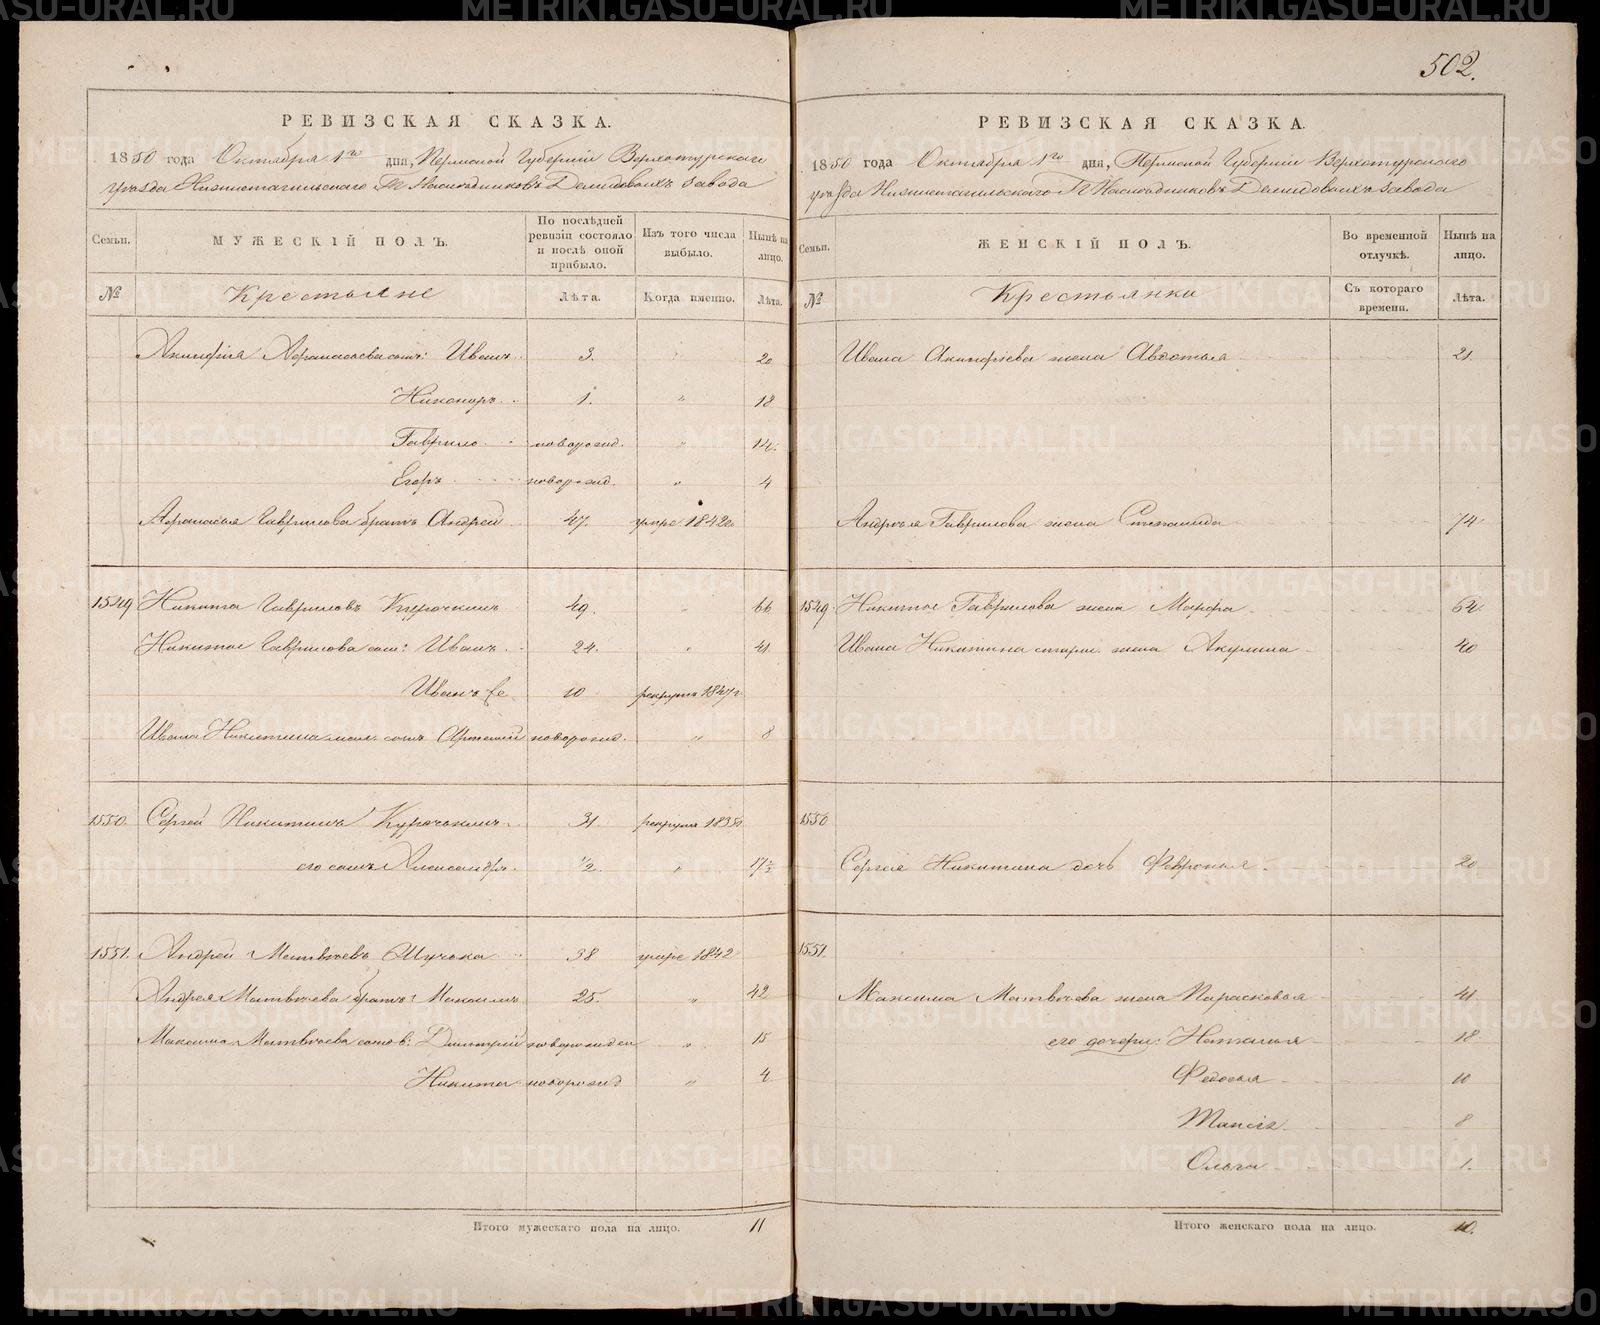 502.
РЕВИЗСКАЯ СКАЗКА.
1850 года Октября 1го дня, Пермской Губернии Верхотурскаго
уѣзда Нижнетагильскаго Гг Наслѣдниковъ Демидовыхъ завода
Семьи. МУЖЕСКІЙ ПОЛЪ. По послѣдней ревизіи состояло и послѣ оной прибыло. Изъ того числа выбыло. Нынѣ на лицо.
№ Крестьяне Лѣта. Когда именно. Лѣта.
Акинфія Афанасьева сын: Иванъ 3. " 20
Никоноръ 1. " 18
Гаврило новорожд. " 14
Егоръ новорожд. " 4
Афанасья Гаврилова братъ Андрей 47. умре 1842
1549 Никита Гавриловъ Курочкинъ 49. " 66
Никиты Гаврилова сын: Иванъ 24. " 41
Иванъ 2е 10 рекрутъ 1847
Ивана Никитина мал. сынъ Артемій новорожд. " 8
1550. Сергей Никитинъ Курочкинъ 31. рекрутъ 1835
его сынъ Александръ 1/2. " 17 1/2
1551. Андрей Матвѣевъ 38 умре 1842
Андрея Матвѣева братъ: Максимъ 25. " 42
Максима Матвѣева сынов: Дмитрій новорожден " 15
Никита новорожд " 4
Итого мужескаго пола на лицо. 11
РЕВИЗСКАЯ СКАЗКА.
1850 года Октября 1го дня, Пермской Губернии Верхотурскаго
уѣзда Нижнетагильскаго Гг Наслѣдниковъ Демидовыхъ завода
Семьи. ЖЕНСКІЙ ПОЛЪ. Во временной отлучкѣ. Нынѣ на лицо.
№ Крестьянки Съ котораго времени. Лѣта.
Ивана Акинфіева жена Авдотья 21.
Андрея Гаврилова жена Степанида 74
1549. Никиты Гаврилова жена Марфа 64
Ивана Никитина старш. жена Акулина 40
1550
Сергея Никитина дочь Февронья 20
1551.
Максима Матвѣева жена Парасковья 41
его дочери: Наталья 18
Федосья 10
8
Ольга 1.
Итого женскаго пола на лицо. 10.
METRIKI.GASO-URAL.RU